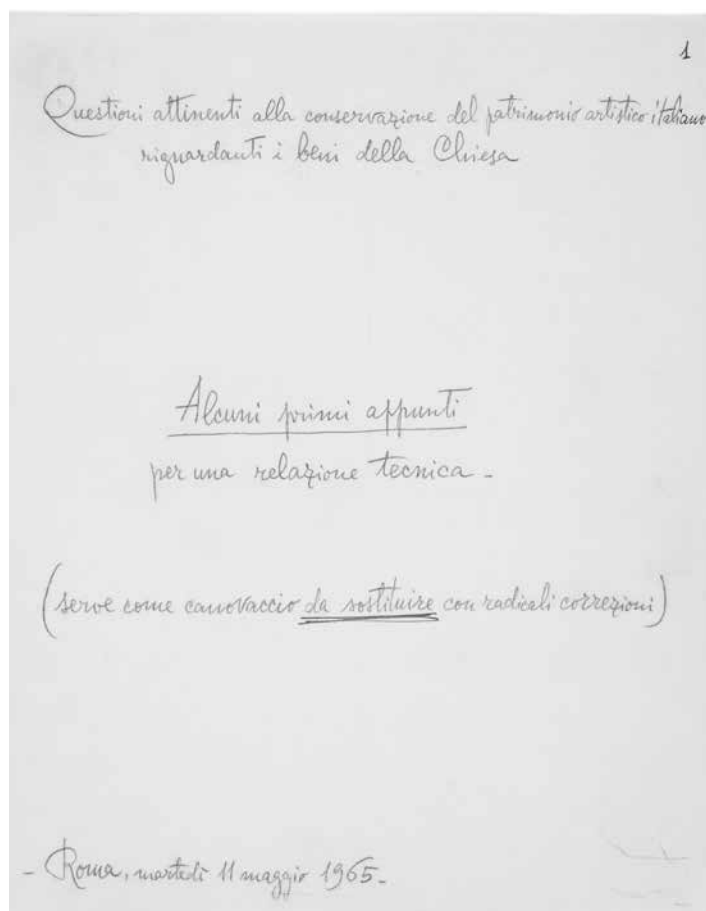 1
Questioni attinenti alla conservazione del patrimonio artistico italiano
riguardanti i beni della Chiesa
Alcuni primi appunti
per una relazione tecnica -
(serve come canovaccio da sostituire con radicali correzioni)
- Roma, martedì 11 maggio 1965 -